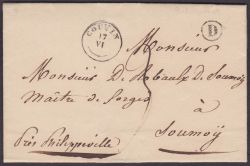 COUVIN
17
VI
D
Monsieur
Monsieur De Robaulx de Soumoÿ
Maître de forges
à
Soumoÿ
Près Philippeville